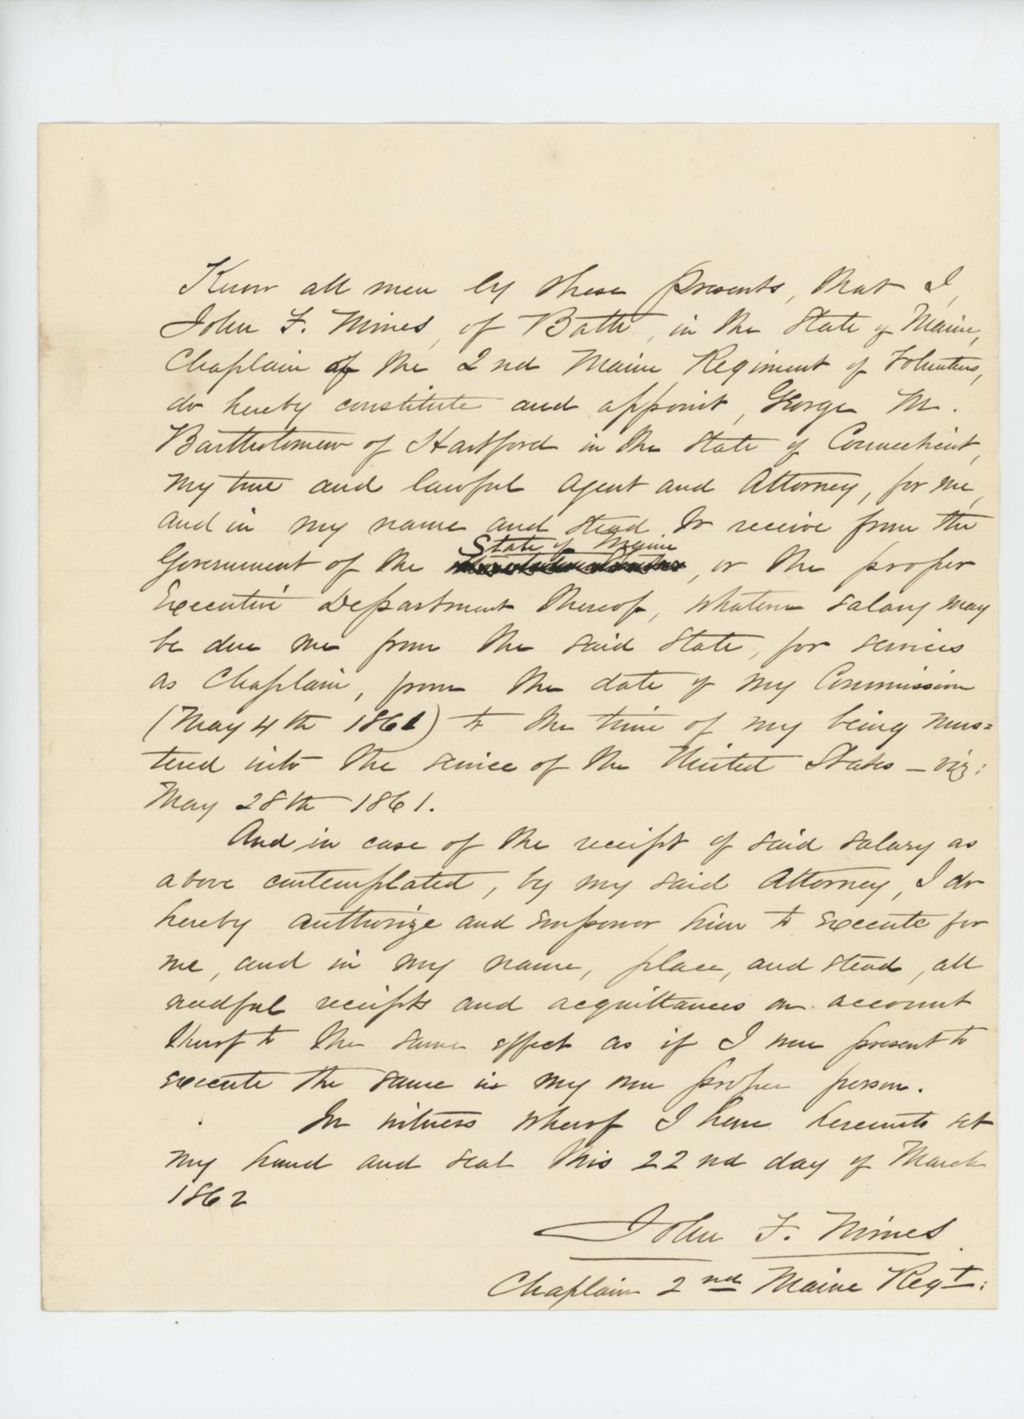 Know all men by these presents, that I,
John F. Mines, of Bath, in the State of Maine,
Chaplain of the 2nd Maine Regiment of Volunteers,
do hereby constitute and appoint, George M.
Bartholomew of Hartford in the State of Connecticut,
my true and lawful Agent and Attorney, for me,
and in my name and stead to receive from the
State of Maine
Government of the , or the proper
Executive Department thereof, whatever salary may
be due me from the said State, for services
as Chaplain, from the date of my Commission
(May 4th 1861) to the time of my being mus=
tered into the service of the United States – viz:
May 28th 1861.
And in case of the receipt of said salary as
above contemplated, by my said Attorney, I do
hereby authorize and empower him to execute for
me, and in my name, place, and stead, all
needful receipts and acquittances on account
thereof to the same effect as if I were present to
execute the same in my own proper person.
In witness whereof I have hereunto set
my hand and seal this 22nd day of March
1862
John F. Mines.
Chaplain 2nd Maine Regt: